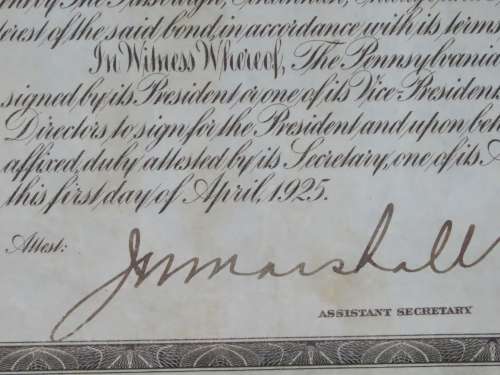 the Pittsburgh, Cincinnati, Chicago
terest of the said bond, in accordance with its terms
In Witness Whereof, The Pennsylvania
signed by its President or one of its Vice-Presidents
Directors to sign for the President and upon
affixed, duly attested by its Secretary, one of its A
this first day of April, 1925.
Attest:
J W Marshall
ASSISTANT SECRETARY